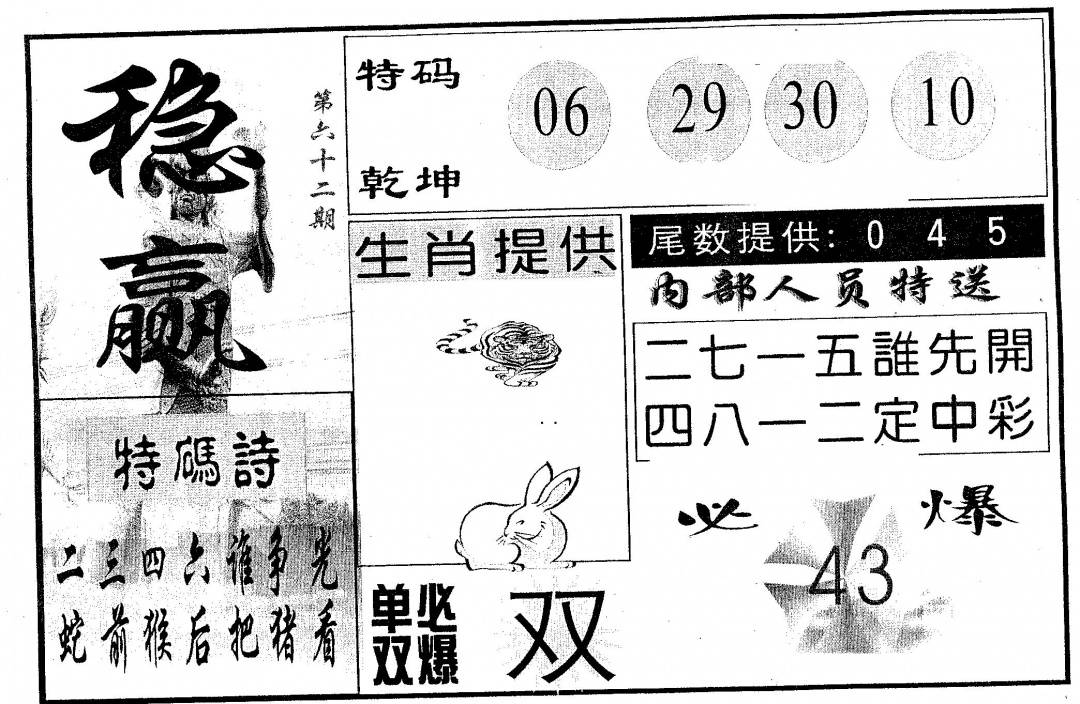 稳赢
第六十二期
特码
乾坤
06 29 30 10
生肖提供
尾数提供: 0 4 5
内部人员特送
二七一五誰先開
四八一二定中彩
特碼詩
二三四六谁争光
蛇前猴后把猪看
单双必爆
双
必爆
43